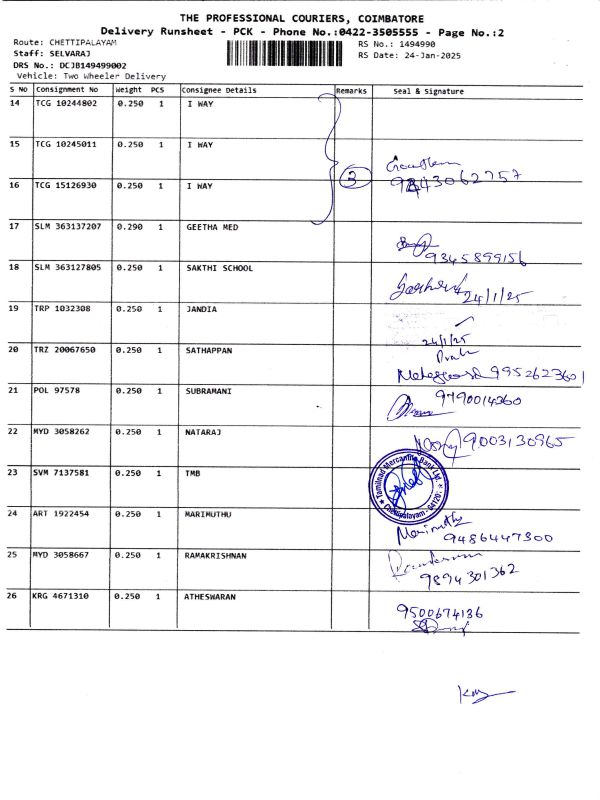 THE PROFESSIONAL COURIERS, COIMBATORE
Delivery Runsheet - PCK - Phone No.:0422-3505555 - Page No.:2
Route: CHETTIPALAYAM
Staff: SELVARAJ
DRS No.: DCJB149499002
Vehicle: Two Wheeler Delivery
RS No.: 1494990
RS Date: 24-Jan-2025
S No Consignment No Weight PCS Consignee Details Remarks Seal & Signature
14 TCG 10244802 0.250 1 I WAY
15 TCG 10245011 0.250 1 I WAY
3
16 TCG 15126930 0.250 1 I WAY
17 SLM 363137207 0.290 1 GEETHA MED
9345899156
18 SLM 363127805 0.250 1 SAKTHI SCHOOL
24/1/25
19 TRP 1032308 0.250 1 JANDIA
24/1/25
20 TRZ 20067650 0.250 1 SATHAPPAN
9952623601
21 POL 97578 0.250 1 SUBRAMANI
9790014360
22 MYD 3058262 0.250 1 NATARAJ
9003130965
23 SVM 7137581 0.250 1 TMB
Tamilnad Mercantile Bank Ltd.
Chettipalayam - 641201
24 ART 1922454 0.250 1 MARIMUTHU
Marimuthu
9486447300
25 MYD 3058667 0.250 1 RAMAKRISHNAN
9894301362
26 KRG 4671310 0.250 1 ATHESWARAN
9500674136